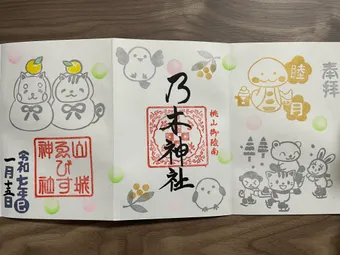 奉拝
睦月
桃山御陵南
乃木神社
山城
ゑびす
神社
令和七年巳
一月十五日